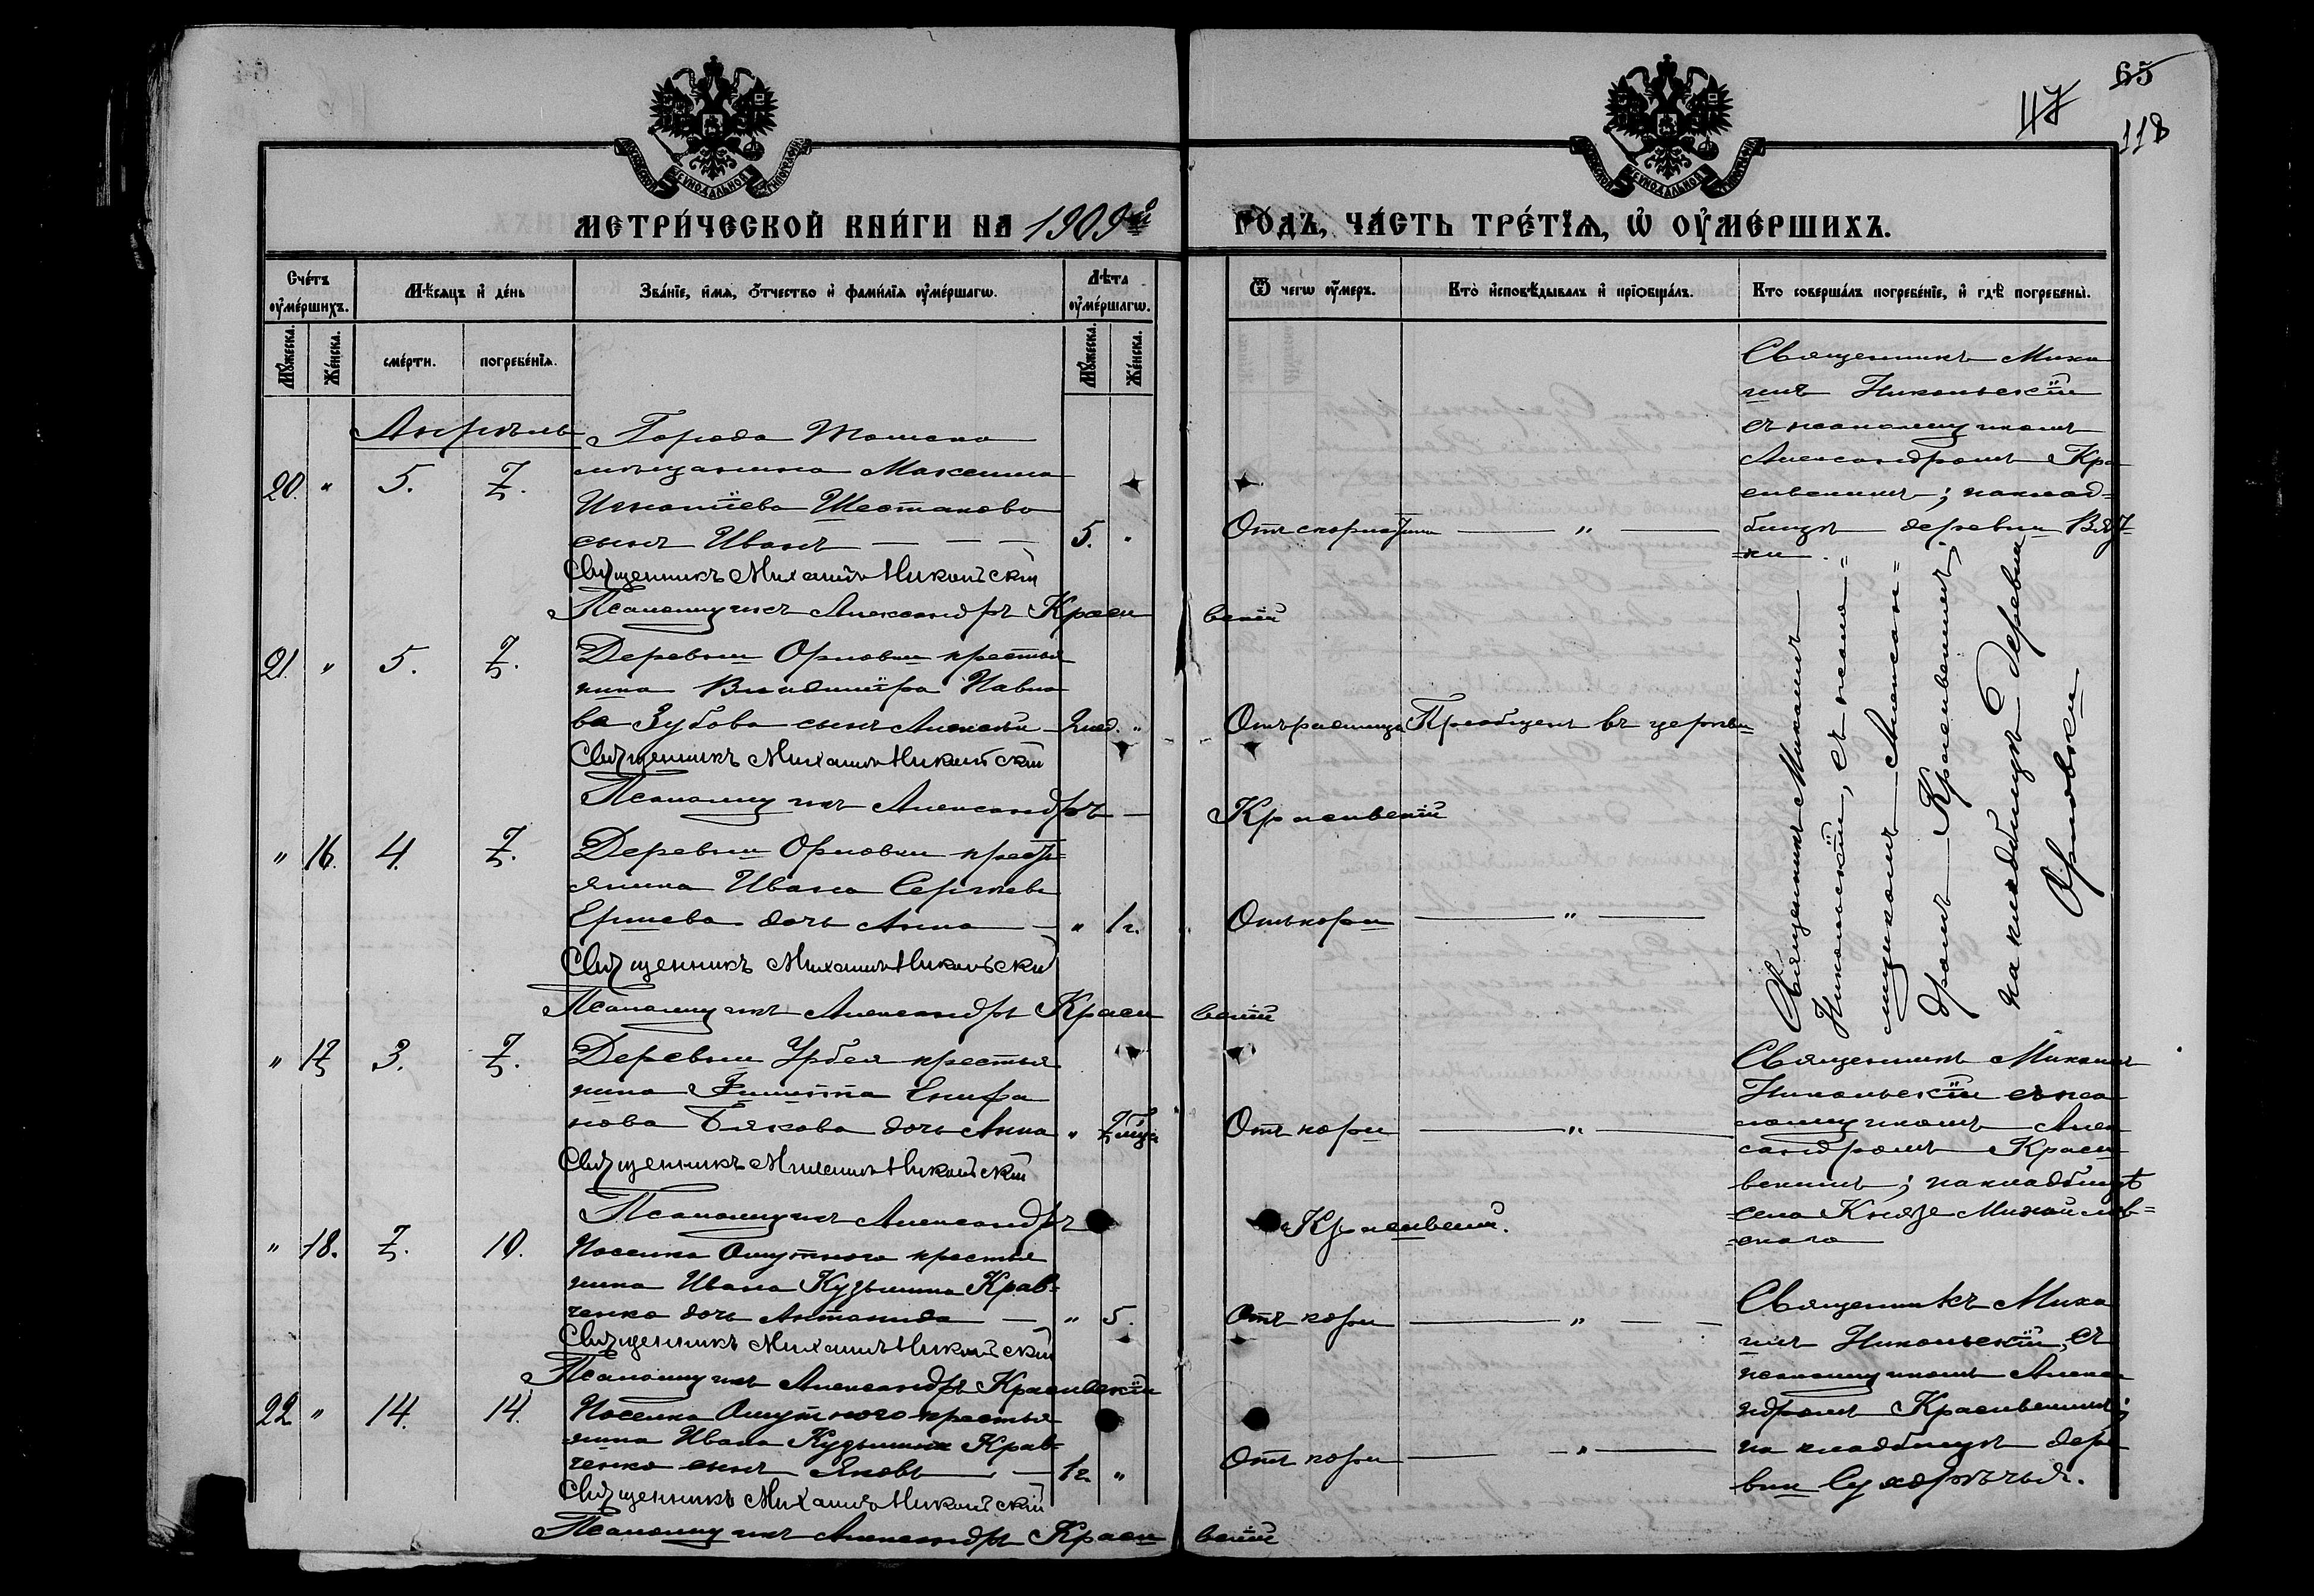 65
47
118
МЕТРИ́ЧЕСКОЙ КНИ́ГИ НА 1909й ГО́ДЪ, ЧА́СТЬ ТРЕ́ТІѦ, Ѡ҆ ОУ҆МЕ́РШИХЪ.
Сче́тъ оу҆ме́ршихъ.
Мꙋ́жеска.
Же́нска.
Мѣ́сѧцъ и҆ де́нь
сме́рти.
погребе́нїѧ.
Зва́нїе, и҆́мѧ, ѻ҆́тчество и҆ фами́лїѧ оу҆ме́ршагѡ.
Лѣ́та оу҆ме́ршагѡ.
Мꙋ́жеска.
Же́нска.
Ѿ чегѡ̀ оу҆́меръ.
Кто̀ и҆сповѣ́дывалъ и҆ прїѡбща́лъ.
Кто̀ соверша́лъ погребе́нїе, и҆ гдѣ̀ погребены̀.
Апрѣль
20. " 5. 7.
Города Томска
мѣщанина Максима
Игнатіева Шестакова
сынъ Иванъ — — —
5. "
Отъ скарлатины — " —
Священникъ Миха
илъ Никольскій
съ псаломщикомъ
Александромъ Кра
сивскимъ; на клад=
бищѣ деревни Вяз=
=ки.
Священникъ Михаилъ Никольскій
Псаломщикъ Александръ Краси
вскій
21. " 5. 7.
Деревни Орловки крестья
нина Владиміра Павло
ва Зубова сынъ Алексѣй
2 нед. "
Отъ родимца
Пріобщенъ въ церкви
Священникъ Михаилъ
Никольскій, съ псало=
мщикомъ Алексан=
дромъ Красивскимъ;
на кладбищѣ деревни
Орловки
Священникъ Михаилъ Никольскій
Псаломщикъ Александръ —
Красивскій
" 16. 4. 7.
Деревни Орловки крест=
янина Ивана Сергѣева
Ершева дочь Анна —
" 1 г.
Отъ кори — " —
Священникъ Михаилъ Никольскій
Псаломщикъ Александръ Краси
вскій
" 17 3. 7.
Деревни Урбея крестья
нина Филиппа Епифа
нова Бякова дочь Анна
" 7 мѣц
Отъ кори — " —
Священникъ Михаилъ
Никольскій съ пса
ломщикомъ Алек
сандромъ Краси
вскимъ; на кладбищѣ
села Князе-Михайлов=
=скаго
Священникъ Михаилъ Никольскій
Псаломщикъ Александръ
Красивскій.
" 18. 7. 10.
Поселка Омутного крестья
нина Ивана Кузьмина Крав=
ченко дочь Антонида —
" 5.
Отъ кори — " — —
Священникъ Миха
илъ Никольскій, съ
псаломщикомъ Алекса
ндромъ Красивскимъ;
на кладбищѣ дере
вни Сухорѣчья.
Священникъ Михаилъ Никольскій
Псаломщикъ Александръ Красивскій
22 " 14. 14.
Поселка Омутного крестья
нина Ивана Кузьмина Крав=
ченко сынъ Яковъ —
1 г. "
Отъ кори — " —
Священникъ Михаилъ Никольскій
Псаломщикъ Александръ Краси
вскій